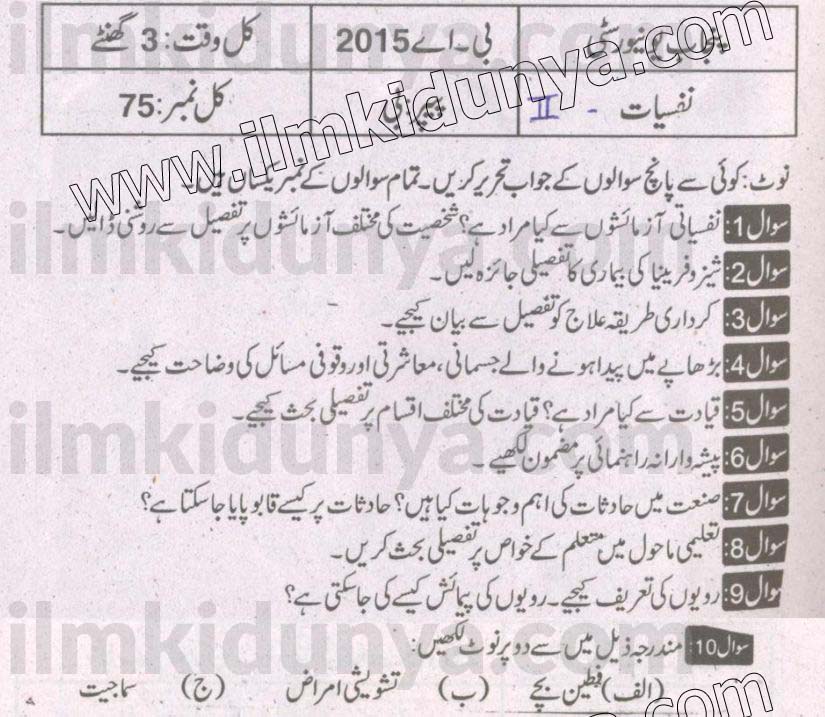 پنجاب یونیورسٹی بی۔اے 2015 کل وقت: 3 گھنٹے
نفسیات - II پرچہ: بی کل نمبر: 75
www.ilmkidunya.com
نوٹ: کوئی سے پانچ سوالوں کے جواب تحریر کریں۔ تمام سوالوں کے نمبر یکساں ہیں۔
سوال 1: نفسیاتی آزمائشوں سے کیا مراد ہے؟ شخصیت کی مختلف آزمائشوں پر تفصیل سے روشنی ڈالیں۔
سوال 2: شیزوفرینیا کی بیماری کا تفصیلی جائزہ لیں۔
سوال 3: کرداری طریقہ علاج کو تفصیل سے بیان کیجیے۔
سوال 4: بڑھاپے میں پیدا ہونے والے جسمانی، معاشرتی اور وقوفی مسائل کی وضاحت کیجیے۔
سوال 5: قیادت سے کیا مراد ہے؟ قیادت کی مختلف اقسام پر تفصیلی بحث کیجیے۔
سوال 6: پیشہ وارانہ راہنمائی پر مضمون لکھیے۔
سوال 7: صنعت میں حادثات کی اہم وجوہات کیا ہیں؟ حادثات پر کیسے قابو پایا جا سکتا ہے؟
سوال 8: تعلیمی ماحول میں متعلم کے خواص پر تفصیلی بحث کریں۔
سوال 9: رویوں کی تعریف کیجیے۔ رویوں کی پیمائش کیسے کی جا سکتی ہے؟
سوال 10: مندرجہ ذیل میں سے دو پر نوٹ لکھیں:
(الف) فطین بچے (ب) تشویشی امراض (ج) سماجیت